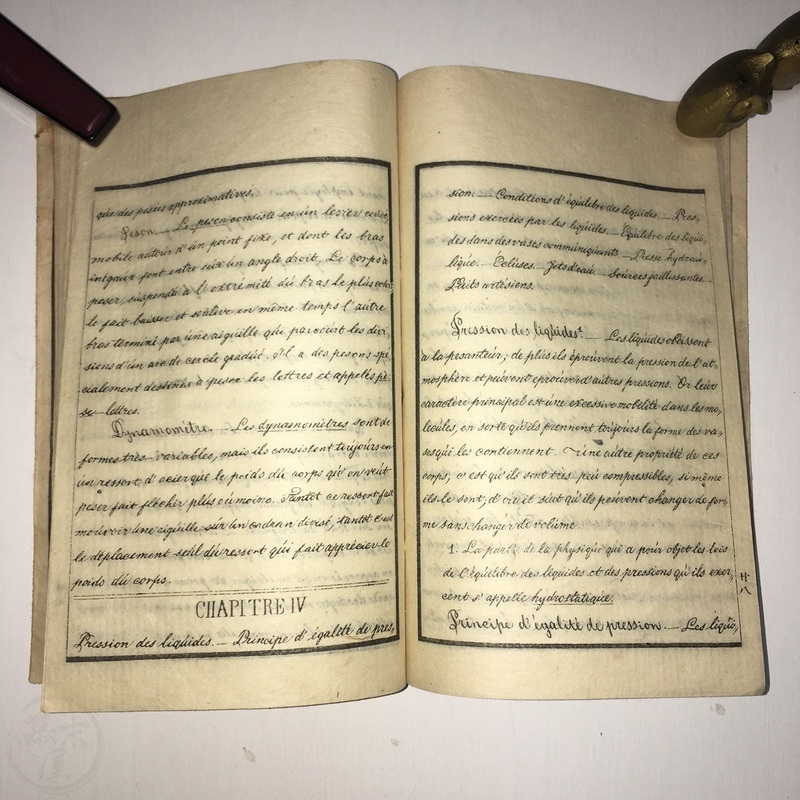 que des pesées approximatives.
Peson. — Le peson consiste en un levier coudé,
mobile autour d'un point fixe, et dont les bras
inégaux font entre eux un angle droit. Le corps à
peser, suspendu à l'extrémité du bras le plus court
le fait baisser et soulève en même temps l'autre
bras terminé par une aiguille que parcourt les divi-
sions d'un arc de cercle gradué, il a des pesons spé-
cialement destinés à peser les lettres et appelés pè-
se-lettres.
Dynamomitre. — Les dynamomètres sont de
formes très-variables, mais ils consistent toujours en
un ressort d'acier que le poids du corps qu'on veut
peser fait fléchir plus ou moins. Tantôt ce ressort fait
mouvoir une aiguille sur un cadran divisé, tantôt c'est
le déplacement seul du ressort qui fait apprécier le
poids du corps.
CHAPITRE IV
Pression des liquides. — Principe d'égalité de pres,
sion. — Conditions d'équilibre des liquides. — Pres,
sions exercées par les liquides. — Equilibre des liqui,
des dans des vases communiquants — Presse hydrau,
lique. — Ecluses. — Jets d'eau. — Sources jaillissantes —
Puits artésiens.
Pression des liquides. — Les liquides obéissent
à la pesanteur; de plus ils éprouvent la pression de l'at,
mosphère et peuvent éprouver d'autres pressions. Or leur
caractère principal est une excessive mobilité dans les mo,
lecules, en sorte qu'ils prennent toujours la forme des va,
ses qui les contiennent. — Une autre propriété de ces
corps, c'est qu'ils sont très-peu compressibles, si même
ils le sont, d'où il suit qu'ils peuvent changer de for,
me sans changer de volume.
1. La part. de la physique qui a pour objet les lois
de l'équilibre des liquides et des pressions qu'ils exer,
cent s'appelle hydrostatique.
Principe d'égalité de pression. — Les liqui,
廿八